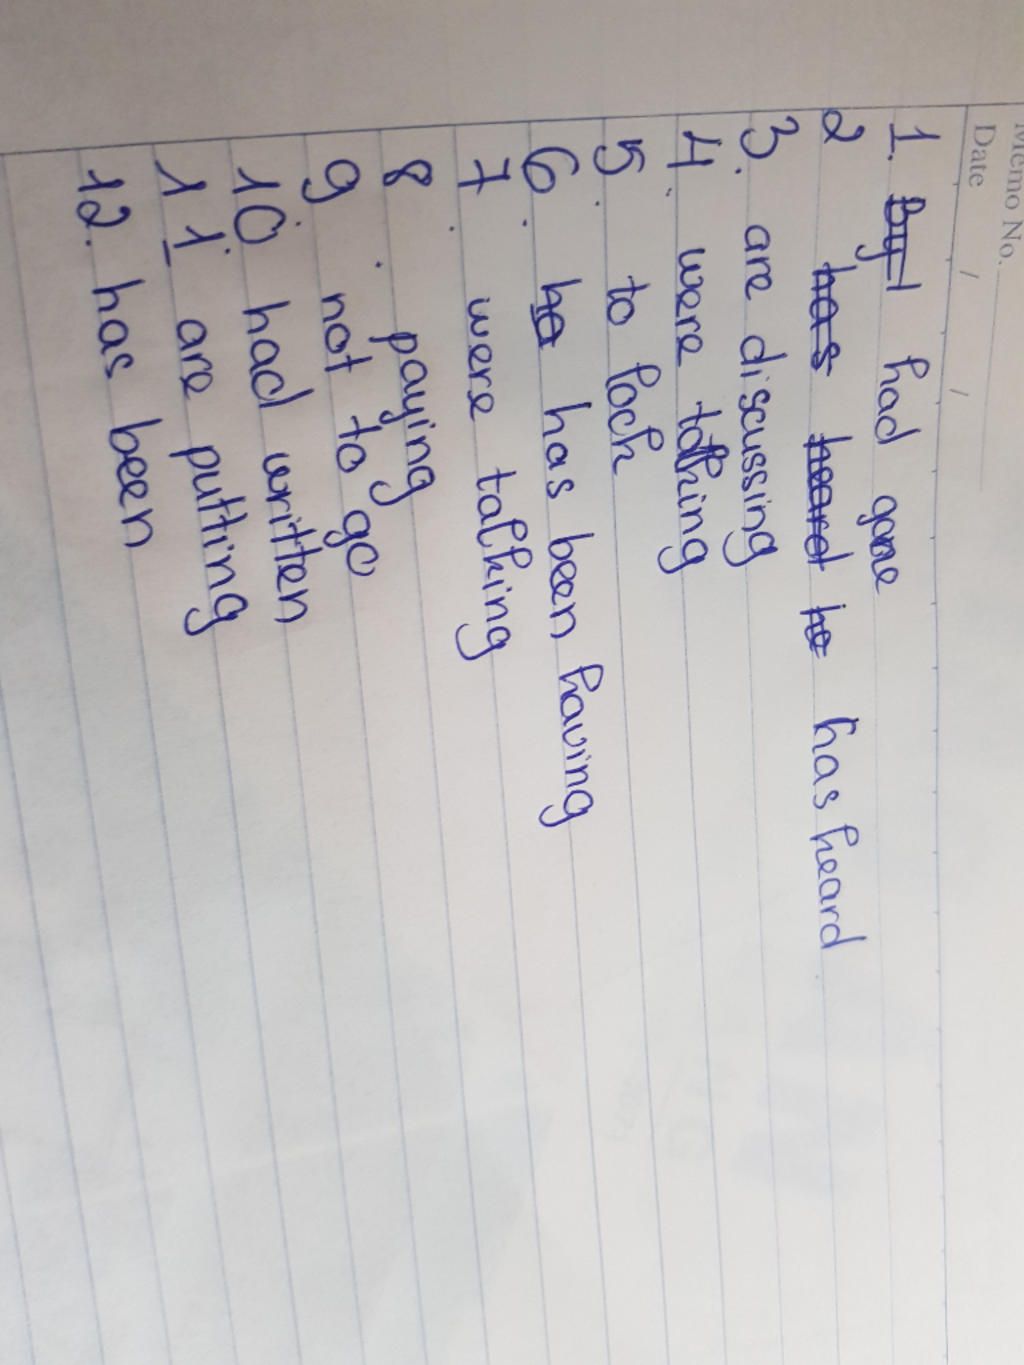 Memo No.
Date / /
1. By I had gone
2 has heard ha has heard
3. are discussing
4. were talking
5. to lock
6. ha has been having
7. were talking
8. paying
9. not to go
10. had written
11. are putting
12. has been